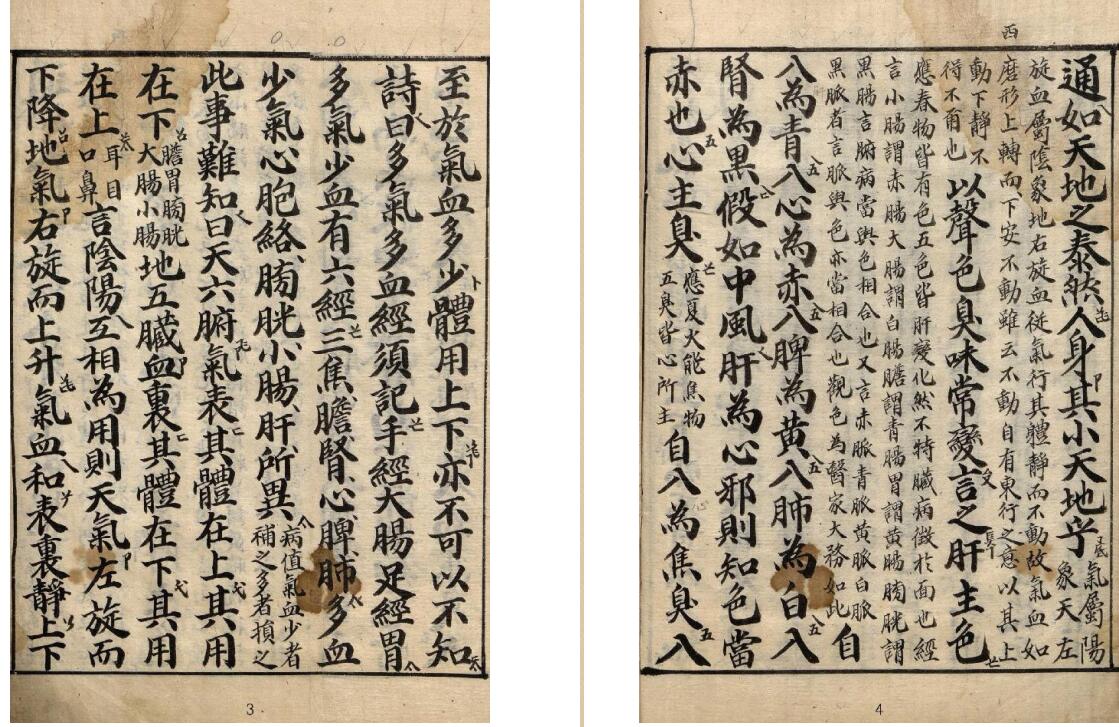 至於氣血多少體用上下亦不可以不知
詩曰多氣多血經須記手經大腸足經胃
多氣少血有六經三焦膽腎心脾肺多血
少氣心胞絡膀胱小腸肝所異病值氣血少者補之多者損之
此事難知曰天六腑氣表其體在上其用
在下膽胃膀胱大腸小腸地五臟血裏其體在下其用
在上耳目口鼻言陰陽互相為用則天氣左旋而
下降地氣右旋而上升氣血和表裏靜上下
3
西
通如天地之泰然人身其小天地乎氣屬陽象天左
旋血屬陰象地右旋血從氣行其體靜而不動故氣血如
磨形上轉而下安不動雖云不動自有東行之意以其上
動下靜不得不爾也以聲色臭味常變言之肝主色
應春物皆有色五色皆肝變化然不特臟病徵於面也經
言小腸謂赤腸大腸謂白腸膽謂青腸胃謂黃腸膀胱謂
黑腸言腑病當與色相合也又言赤脈青脈黃脈白脈
黑脈者言脈與色亦當相合也觀色為醫家大務如此自
入為青入心為赤入脾為黃入肺為白入
腎為黑假如中風肝為心邪則知色當
赤也心主臭應夏火能焦物五臭皆心所主自入為焦臭入
4